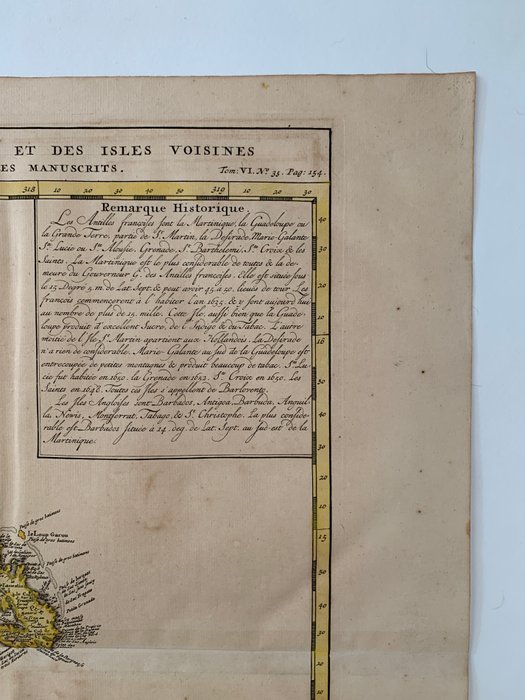 ET DES ISLES VOISINES
ES MANUSCRITS.
Tom: VI. Nº 35. Pag: 154.
318 10 20 30 40 50 319 10 20 30
Remarque Historique.
Les Antilles françoises sont la Martinique, la Guadeloupe ou
la Grande Terre, partie de St. Martin, la Desirade, Marie Galante
Ste. Lucie ou Ste. Alousie, Grenade, St. Barthelemi, Ste. Croix & les
Saints. La Martinique est le plus considerable de toutes & la de-
meure du Gouverneur G. des Antilles françoises. Elle est située sous
le 15. Degré 5. m de Lat. Sept. & peut avoir 45. a 50. lieues de tour. Les
francois commencerent à l'habiter l'an 1635. & y sont aujourd'hui
au nombre de plus de 15. mille. Cette Ile, aussi bien que la Guade-
loupe produit d'excellent Sucre, de l'Indigo & du Tabac. L'autre
moitié de l'Ile St. Martin apartient aux Hollandois. La Desirade
n'a rien de considerable. Marie-Galante au sud de la Guadeloupe est
entrecoupée de petites montagnes & produit beaucoup de tabac. Ste. Lu-
cie fut habitée en 1650. la Grenade en 1652. Ste. Croix en 1650. Les
Saints en 1648. Toutes ces Iles s'appellent de Barlovento.
Les Iles Angloises sont Barbados, Antigoa, Barbuda, Anguil-
la, Newis, Montserrat, Tabago, & St. Christophe. La plus conside-
rable est Barbados située à 14. deg. de Lat. Sept. au sud-est de la
Martinique.
40
30
20
10
16
50
40
30
20
10
15
50
40
30
20
10
Passe de gros batimens
le Loup Garou
Passe de gros batimens